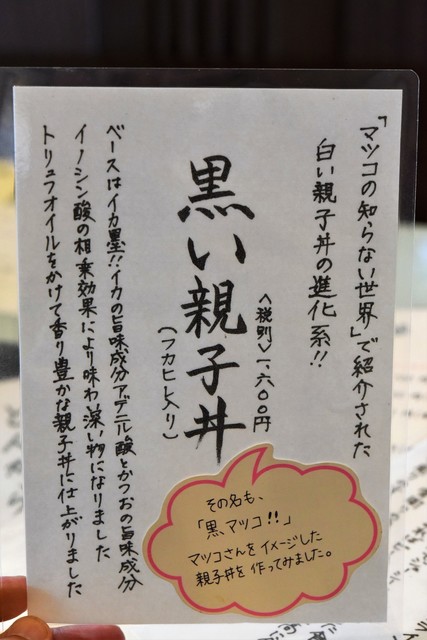 「マツコの知らない世界」で紹介された
白い親子丼の進化系!!
黒い親子丼
<税別>一、六〇〇円
(フカヒレ入り)
ベースはイカ墨!!イカの旨味成分アデニル酸とかつおの旨味成分
イノシン酸の相乗効果により味わい深い物になりました
トリュフオイルをかけて香り豊かな親子丼に仕上がりました
その名も、
「黒、マツコ!!」
マツコさんをイメージした
親子丼を作ってみました。